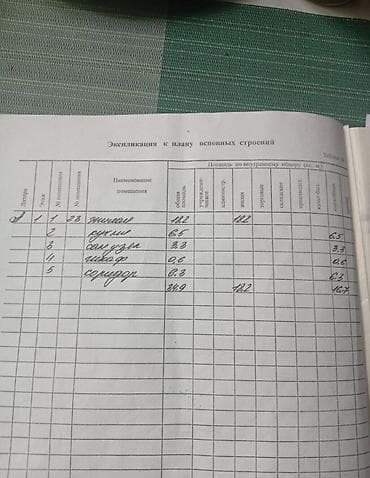 Экспликация к плану основных строений
Площадь по внутреннему обмеру (кв. м)
Литера Этаж № помещения № помещения Наименование помещения общая площадь жилая торговые складские
1 1 23 жилая 18.2 18.2
2 кухня 6.5 6.5
3 санузел 3.3 3.3
4 шкаф 0.6 0.6
5 коридор 6.3 6.3
34.9 18.2 16.7